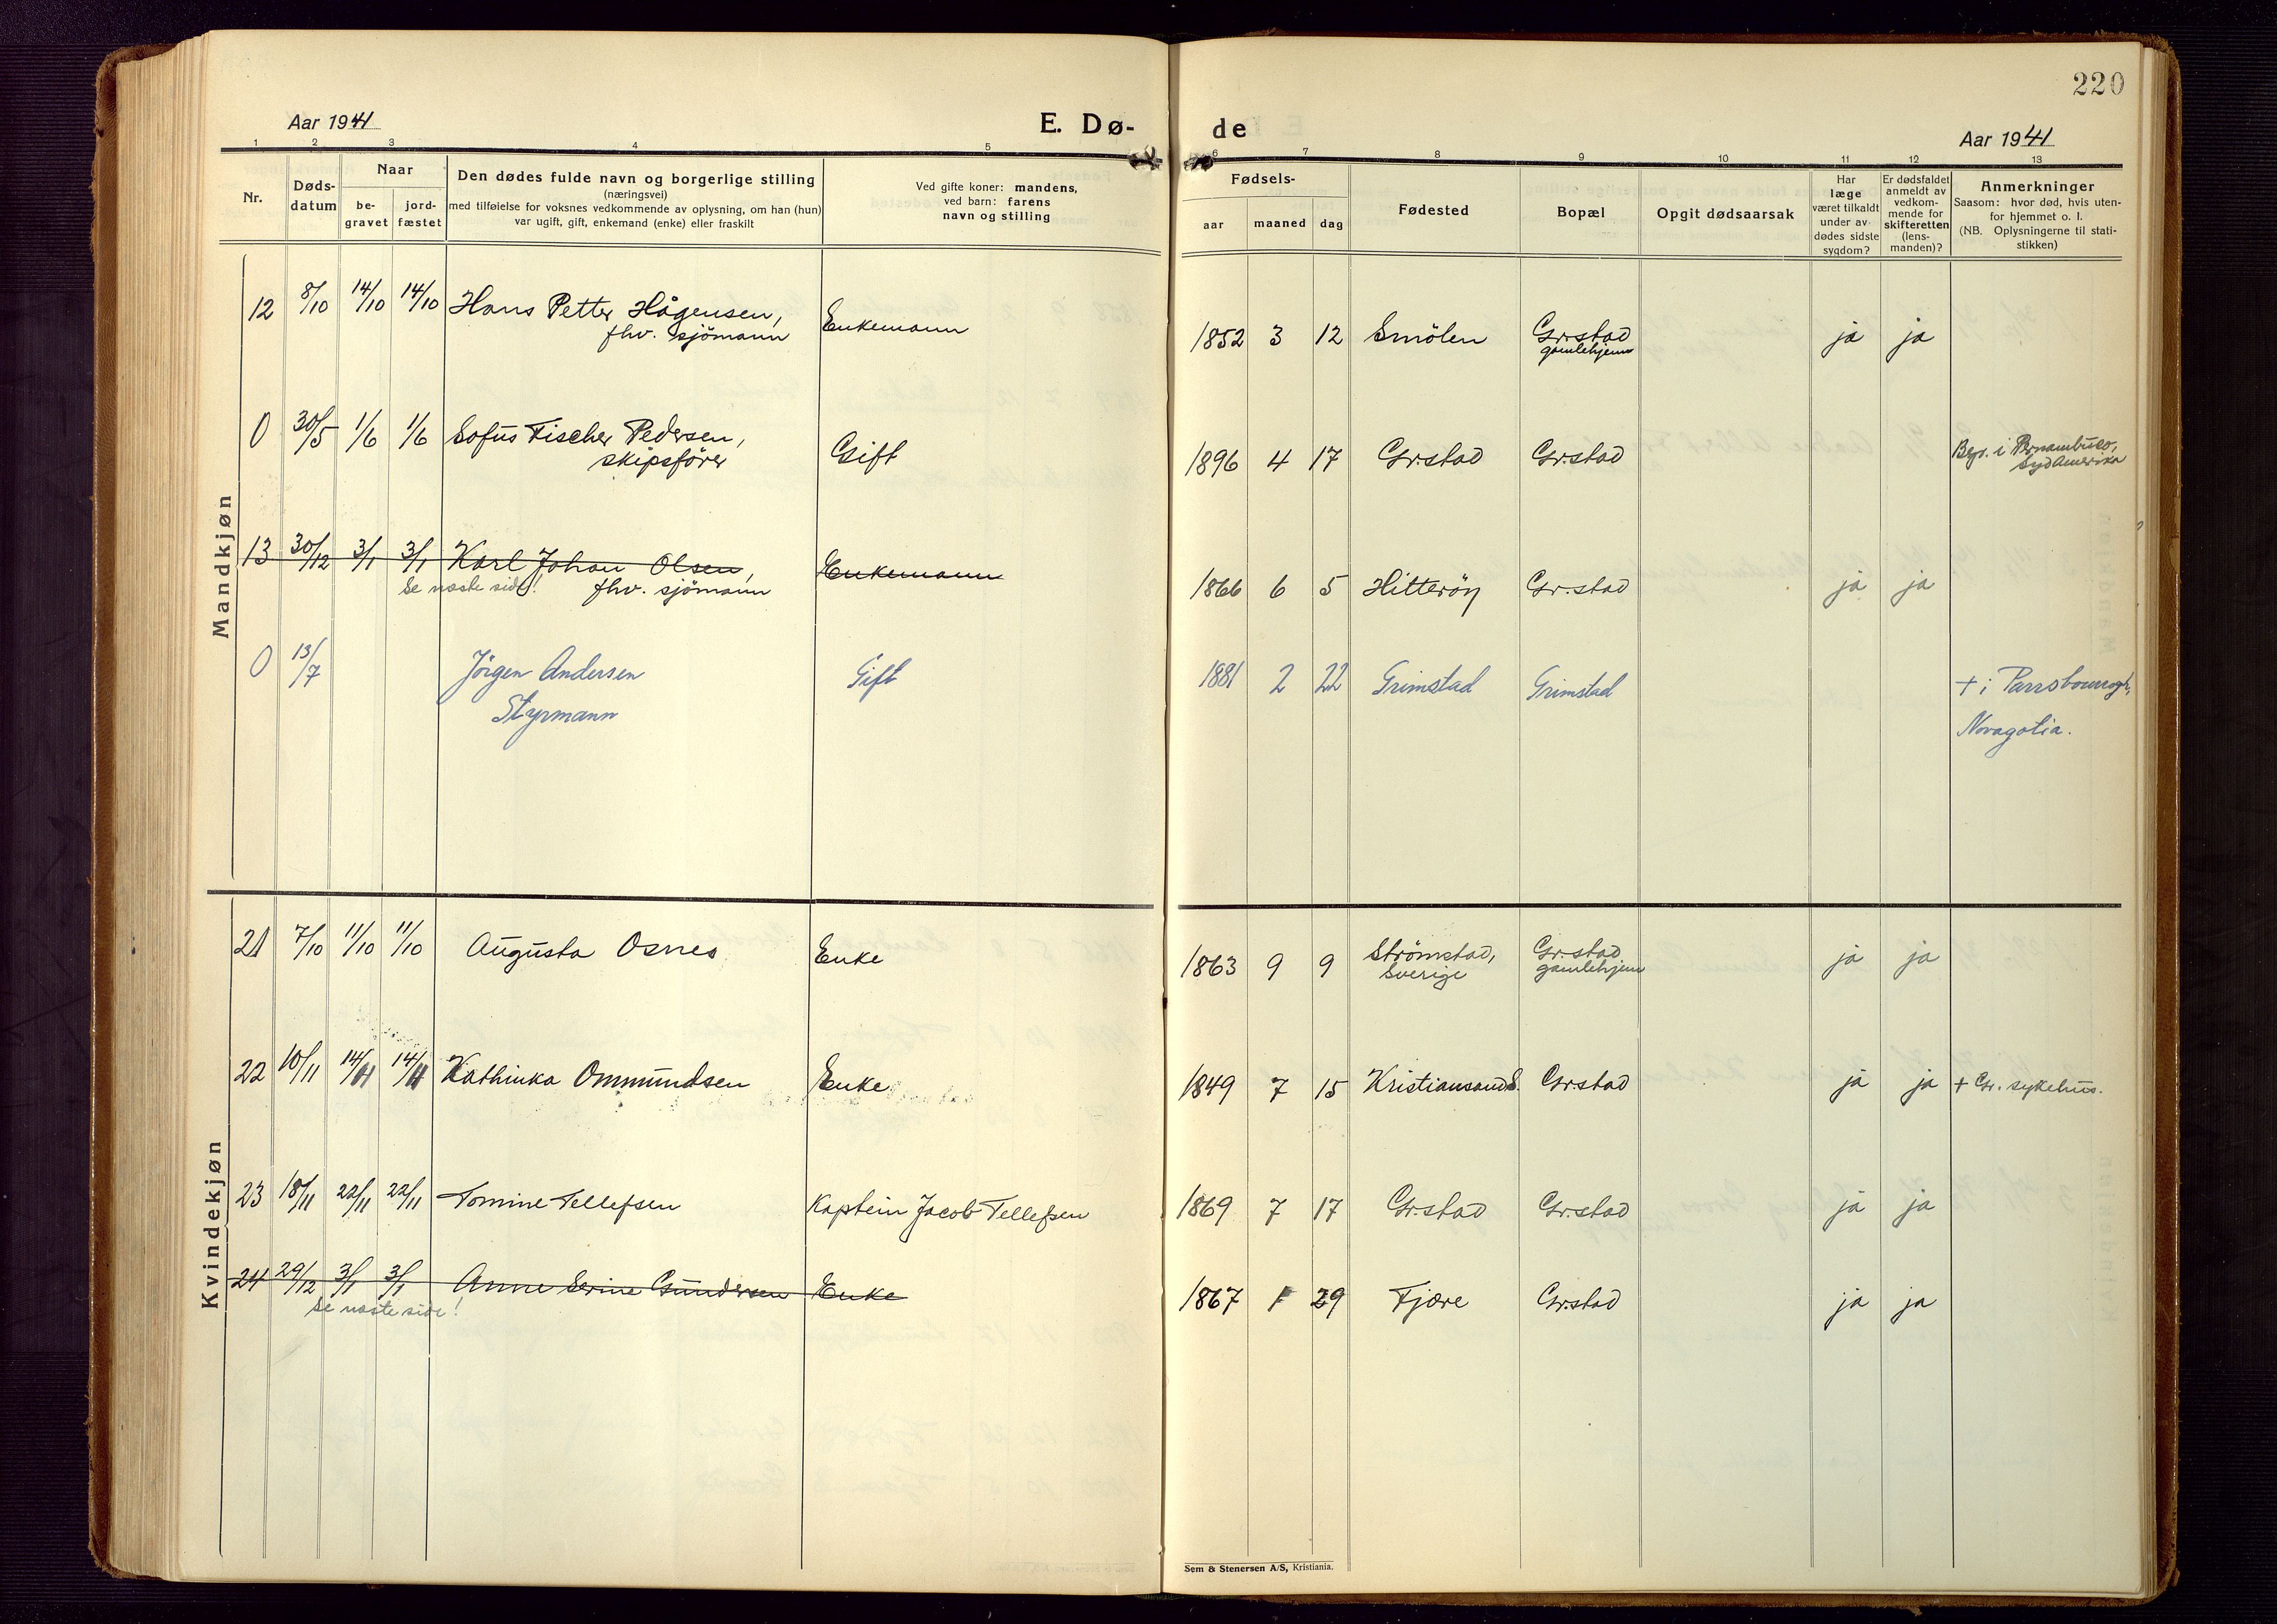 220
Aar 1941
E. Dø-
de
Aar 1941
1 2 3 4 5 6 7 8 9 10 11 12 13
Nr.
Døds-
datum
Naar
be-
gravet
jord-
fæstet
Den dødes fulde navn og borgerlige stilling
(næringsvei)
med tilføielse for voksnes vedkommende av oplysning, om han (hun)
var ugift, gift, enkemand (enke) eller fraskilt
Ved gifte koner: mandens,
ved barn: farens
navn og stilling
Fødsels-
aar maaned dag
Fødested
Bopæl
Opgit dødsaarsak
Har
læge
været tilkaldt
under av-
dødes sidste
sygdom?
Er dødsfaldet
anmeldt av
vedkom-
mende for
skifteretten
(lens-
manden)?
Anmerkninger
Saasom: hvor død, hvis uten-
for hjemmet o. l.
(NB. Oplysningerne til stati-
stikken)
Mandkjøn
12 8/10 14/10 14/10 Hans Petter Hågensen, Enkemann 1852 3 12 Smölen Gr.stad ja ja
fhv. sjömann gamlehjem
0 30/5 1/6 1/6 Sofus Fischer Pedersen, Gift 1896 4 17 Gr.stad Gr.stad Begr. i Pernambuco,
skipsförer SydAmerika
13 30/12 3/1 3/1 Karl Johan Olsen, Enkemann 1866 6 5 Hitteröy Gr.stad ja ja
Se næste side! fhv. sjömann
0 13/7 Jörgen Andersen Gift 1881 2 22 Grimstad Grimstad + i Parrsbourogh,
Styrmann Novagotia.
Kvindekjøn
21 7/10 11/10 11/10 Augusta Osnes Enke 1863 9 9 Strömstad, Gr.stad ja ja
Sverige gamlehjem
22 10/11 14/11 14/11 Kathinka Ommundsen Enke 1849 7 15 Kristiansand S. Gr.stad ja ja + Gr. sykehus.
23 18/11 22/11 22/11 Tomine Tellefsen Kaptein Jacob Tellefsen 1869 7 17 Gr.stad Gr.stad ja ja
24 29/12 3/1 3/1 Anne Serine Gundersen Enke 1867 1 29 Fjære Gr.stad ja ja
Se næste side!
Sem & Stenersen A/S, Kristiania.